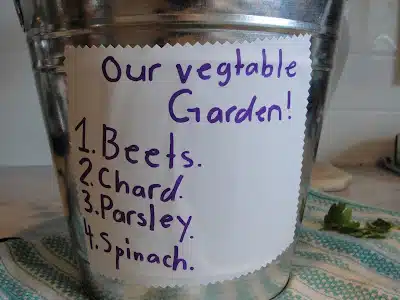 Our vegtable
Garden!
1. Beets.
2. Chard.
3. Parsley.
4. Spinach.